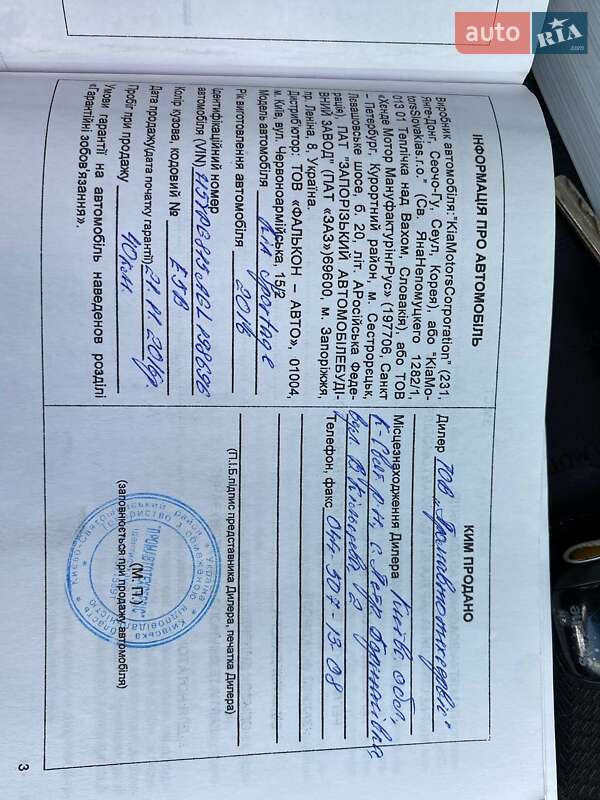 auto RIA .com
ІНФОРМАЦІЯ ПРО АВТОМОБІЛЬ
Виробник автомобіля:"KiaMotorsCorporation" (231,
Янге-Донг, Сеочо-Гу, Сеул, Корея), або "KiaMo-
torsSlovakias.r.o." (Св. ЯнаНепомуцкего 1282/1,
013 01 Теплічка над Вахом, Словакія), або ТОВ
«Хенде Мотор МануфактурінгРус» (197706, Санкт
– Петербург, Курортний район, м. Сестрорецьк,
Левашовське шосе, б. 20, літ. АРосійська Феде-
рація), ПАТ "ЗАПОРІЗЬКИЙ АВТОМОБІЛЕБУДІ-
ВНИЙ ЗАВОД" (ПАТ «ЗАЗ»)69600, м. Запоріжжя,
пр. Леніна, 8, Україна.
Дистриб'ютор: ТОВ «ФАЛЬКОН – АВТО», 01004,
м. Київ, вул. Червоноармійська, 15/2
Модель автомобіля KIA Sportage
Рік виготовлення автомобіля 2016
Ідентифікаційний номер
автомобіля (VIN)
Колір кузова, кодовий №
Дата продажу(дата початку гарантії) 21.11.2016р.
Пробіг при продажу 40км.
Умови гарантії на автомобіль наведенов розділі
«Гарантійні зобов'язання».
КИМ ПРОДАНО
Дилер ТОВ
Місцезнаходження Дилера Київс. обл,
К-Свят. р-н, с. Петр. Борщагівка
вул. В. Кільцева,
Телефон, факс 044. 507-13-08
(П.І.Б.підпис представника Дилера, печатка Дилера)
(М. П.)
(заповнюється при продажу автомобіля)
3